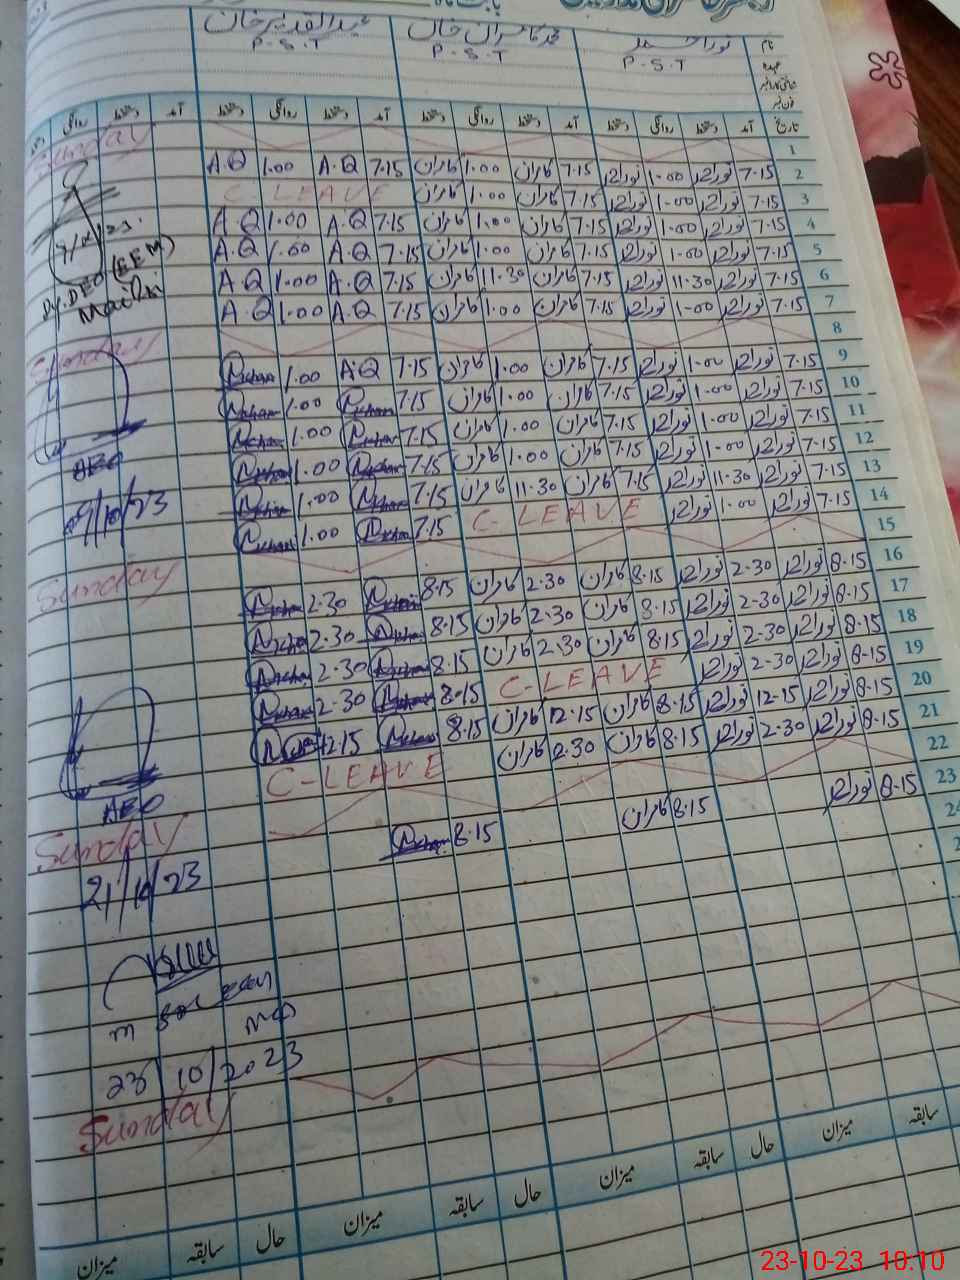 نام نور احمد محمد کامران خان عبدالقدیر خان
عہدہ P.S.T P.S.T P.S.T
شناختی کارڈ نمبر
فون نمبر
تاریخ آمد دستخط روانگی دستخط آمد دستخط روانگی دستخط آمد دستخط روانگی دستخط آمد دستخط روانگی
1 Sunday
2 7.15 نور احمد 1.00 نور احمد 7.15 کامران 1.00 کامران 7.15 A.Q 1.00 A.Q
3 7.15 نور احمد 1.00 نور احمد 7.15 کامران 1.00 کامران C. LEAVE
4 7.15 نور احمد 1.00 نور احمد 7.15 کامران 1.00 کامران 7.15 A.Q 1.00 A.Q
5 7.15 نور احمد 1.00 نور احمد 7.15 کامران 1.00 کامران 7.15 A.Q 1.00 A.Q
6 7.15 نور احمد 11.30 نور احمد 7.15 کامران 11.30 کامران 7.15 A.Q 1.00 A.Q
7 7.15 نور احمد 1.00 نور احمد 7.15 کامران 1.00 کامران 7.15 A.Q 1.00 A.Q
Dy. DEO (EEM)
8 Sunday
9 7.15 نور احمد 1.00 نور احمد 7.15 کامران 1.00 کامران 7.15 A.Q 1.00
10 7.15 نور احمد 1.00 نور احمد 7.15 کامران 1.00 کامران 7.15 1.00
11 7.15 نور احمد 1.00 نور احمد 7.15 کامران 1.00 کامران 7.15 1.00
12 7.15 نور احمد 1.00 نور احمد 7.15 کامران 1.00 کامران 7.15 1.00
AEO
13 7.15 نور احمد 11.30 نور احمد 7.15 کامران 11.30 کامران 7.15 1.00
14 7.15 نور احمد 1.00 نور احمد C-LEAVE 7.15 1.00
09/10/23
15 Sunday
16 8.15 نور احمد 2.30 نور احمد 8.15 کامران 2.30 کامران 8.15 2.30
17 8.15 نور احمد 2.30 نور احمد 8.15 کامران 2.30 کامران 8.15 2.30
18 8.15 نور احمد 2.30 نور احمد 8.15 کامران 2.30 کامران 8.15 2.30
19 8.15 نور احمد 2.30 نور احمد C-LEAVE 8.15 2.30
20 8.15 نور احمد 12.15 نور احمد 8.15 کامران 12.15 کامران 8.15 12.15
21 8.15 نور احمد 2.30 نور احمد 8.15 کامران 2.30 کامران C-LEAVE
AEO
22 Sunday
23 8.15 نور احمد 8.15 کامران 8.15
21/10/23
23/10/2023
Sunday
سابقہ میزان حال سابقہ میزان حال سابقہ میزان حال سابقہ میزان
23-10-23 10:10